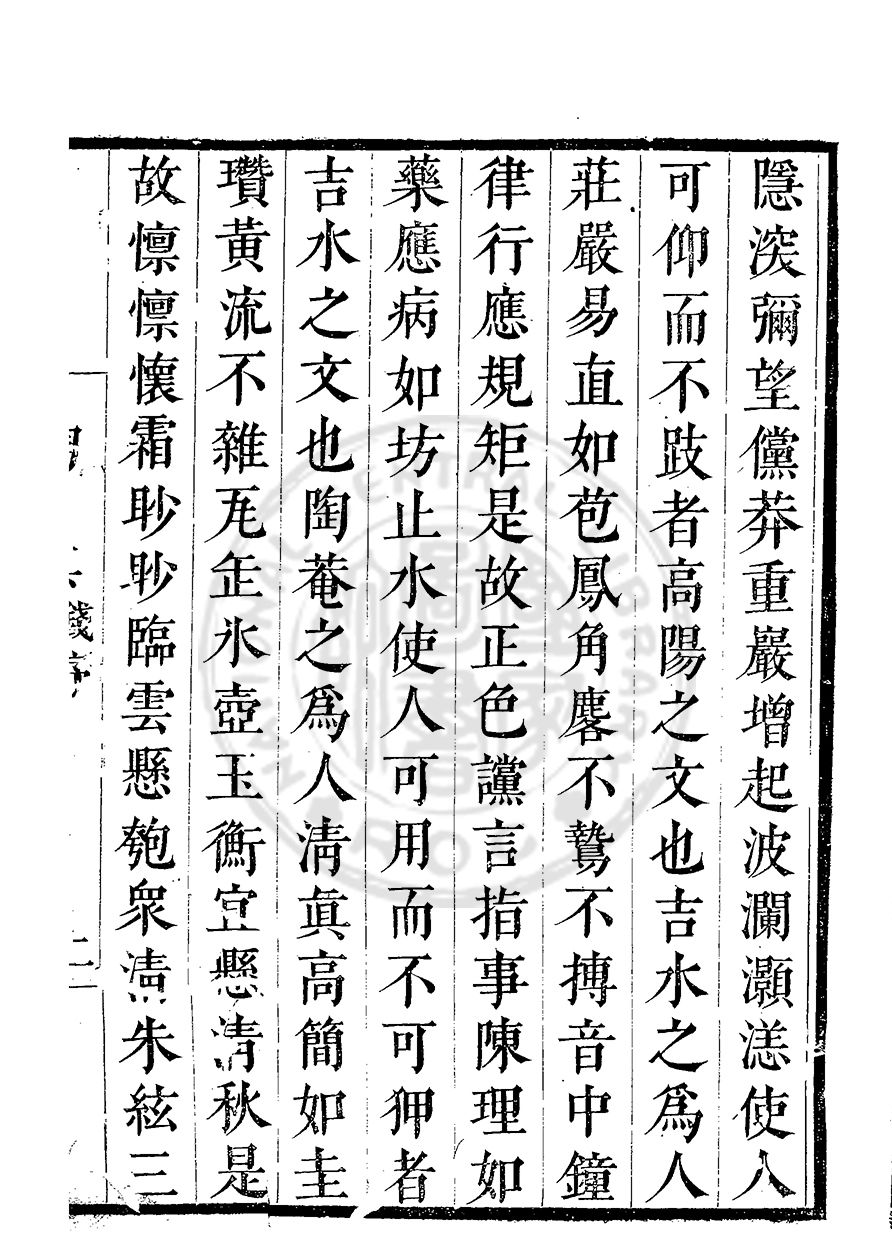 隱深彌望儻莽重巖增起波瀾灝溔使人
可仰而不跂者高陽之文也吉水之爲人
莊嚴易直如苞鳳角麐不鷙不搏音中鐘
律行應規矩是故正色讜言指事陳理如
藥應病如坊止水使人可用而不可狎者
吉水之文也陶菴之爲人清真高簡如圭
瓚黃流不雜瓦缶氷壺玉衡宜懸清秋是
故懍懍懷霜眇眇臨雲懸匏衆清朱絃三
錢序
二